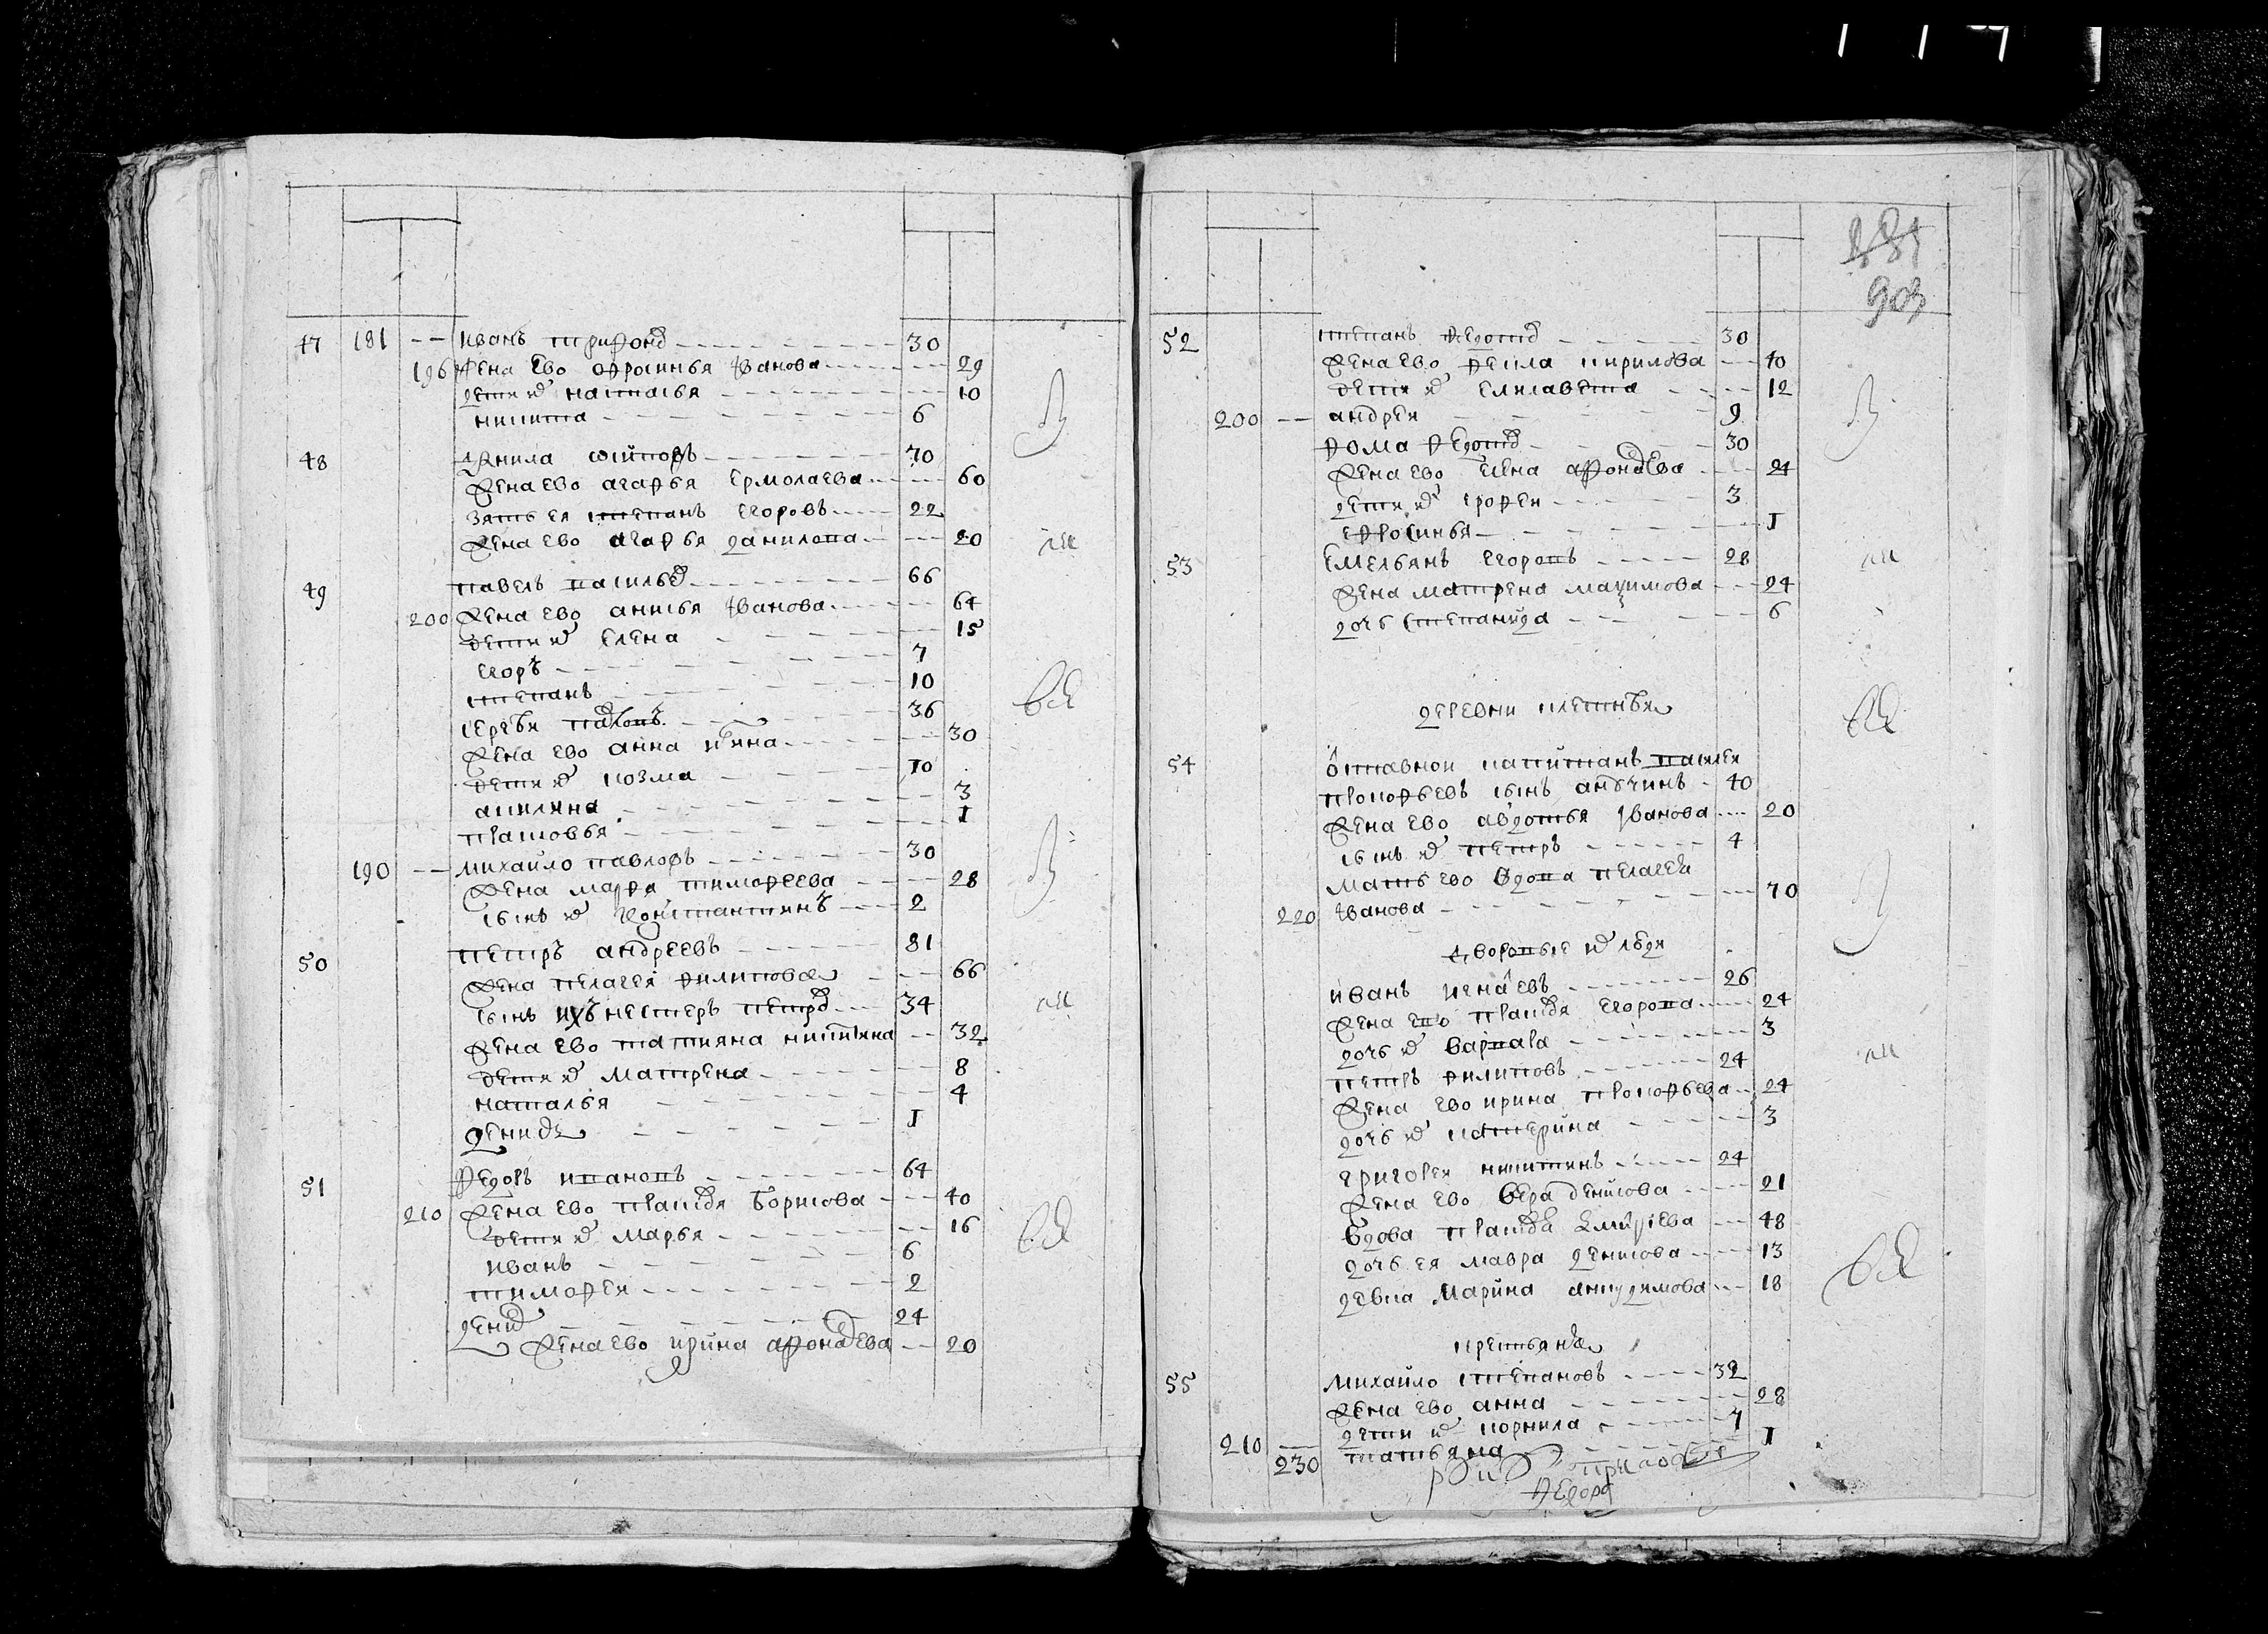 47 181 -- Иванъ Трифоно 30
196 Жена Ево Офросинья Иванова 29
дети их Наталья 10
Никита 6
48 Данила 70
Жена Ево Агафья Ермолаева 60
Зять Ея Степанъ Егоровъ 22
Жена Ево Агафья Данилова 20
49 Павелъ Васильев 66
200 Жена Ево Анисья Иванова 64
дети их Елена 15
Егоръ 7
Степанъ 10
Сергей Павловъ 36
Жена Ево Анна 30
дети их Козма 10
Акилина 3
Прасковья 1
190 -- Михайло Павловъ 30
Жена Марфа Тимофеева 28
Сынъ их Константинъ 2
50 Петръ Андреевъ 81
Жена Пелагея Филипова 66
Сынъ ихъ Нестеръ Петров 34
Жена Ево Татияна Никитина 32
дети их Матрена 8
Наталья 4
Денис 1
51 Федоръ Ивановъ 64
210 Жена Ево Прасков Борисова 40
дети их Марья 16
Иванъ 6
Тимофеи 2
Денис 24
Жена Ево Ирина Афонасева 20
881
903
52 Степанъ Федотов 30
Жена Ево Фекла Кирилова 40
дети их Елисавета 12
200 -- Андреи 9
Фома Федотов 30
Жена Ево Елена Афонасева 24
дети их Ерофеи 3
Ефросинья 1
53 Емельянъ Егоровъ 28
Жена Матрена Маѯимова 24
дочь Степанида 6
Деревни
54 Отставнои Капитанъ
Прокофьевъ сынъ 40
Жена Ево Авдотья Иванова 20
сынъ их Петръ 4
Мать Ево Вдова Пелагея
220 Иванова 70
Дворовые их люди
Иванъ Игнатевъ 26
Жена Ево Прасков Егорова 24
дочь их Варвара 3
Петръ Филиповъ 24
Жена Ево Ирина Прокофьева 24
дочь их Катерина 3
Григореи Никитинъ 24
Жена Ево Вера Денисова 21
Вдова Праскове 48
дочь Ея Мавра Денисова 13
девка Марина Анкудимова 18
Крестьяне
55 Михайло Степановъ 32
Жена Ево Анна 28
дети их Корнила 7
210 -- Татьяна 1
230
Федоръ